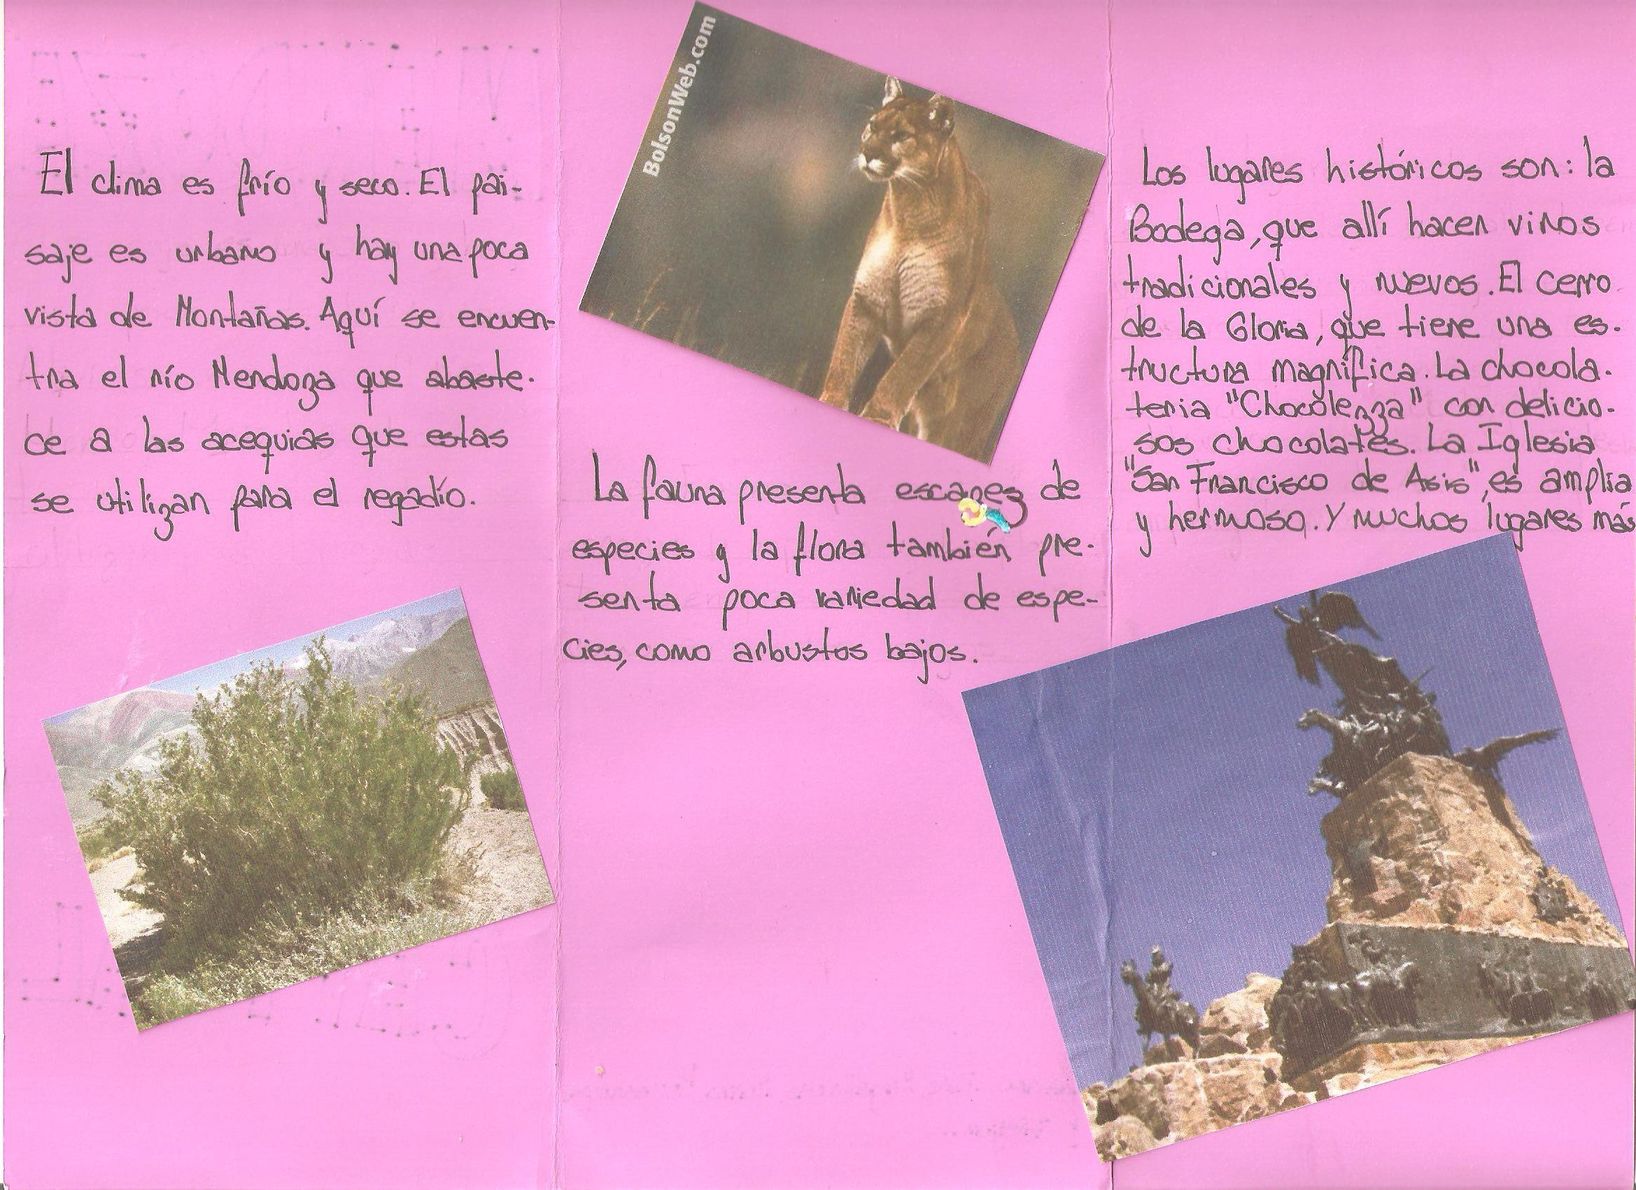 El clima es frío y seco. El pai-
saje es urbano y hay una poca
vista de Montañas. Aquí se encuen-
tra el río Mendoza que abaste-
ce a las acequias que estas
se utilizan para el regadío.
BolsonWeb.com
La fauna presenta escasez de
especies y la flora también pre-
senta poca variedad de espe-
cies, como arbustos bajos.
Los lugares históricos son: la
Bodega, que allí hacen vinos
tradicionales y nuevos. El cerro
de la Gloria, que tiene una es-
tructura magnífica. La chocola-
teria "Chocolezza" con delicio-
sos chocolates. La Iglesia
"San Francisco de Asis", es amplia
y hermosa. Y muchos lugares más